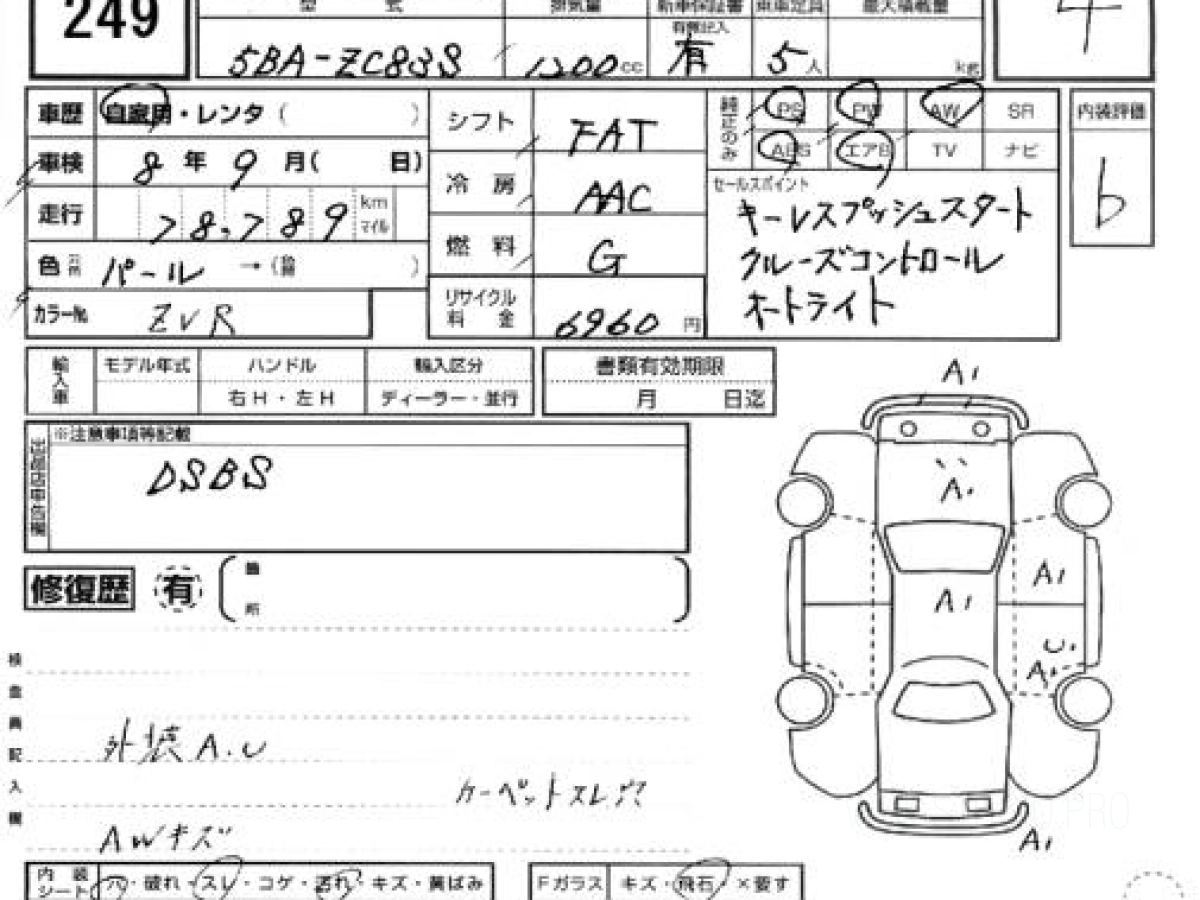 249
型 式 排気量 新車保証書 乗車定員 最大積載量
有無記入
5BA-ZC83S 1200cc 有 5人 kg
4
車歴 自家用・レンタ( )
車検 8年 9月( 日)
走行 78,789 km マイル
色 パール →( )
カラー№ ZVR
シフト FAT
冷房 AAC
燃料 G
リサイクル料金 6960円
純正のみ PS PW AW SR
ABS エアB TV ナビ
セールスポイント
キーレスプッシュスタート
クルーズコントロール
オートライト
内装評価
b
輸入車 モデル年式 ハンドル 輸入区分
右H・左H ディーラー・並行
書類有効期限
月 日迄
※注意事項等記載
DSBS
修復歴 有 箇所
検査員記入欄
外装A.U
カーペットスレ
AWキズ
A1
A.
A1
A1
U.
A.
A1
内装シート 穴・破れ・スレ・コゲ・汚れ・キズ・黄ばみ
Fガラス キズ・飛石・×要す